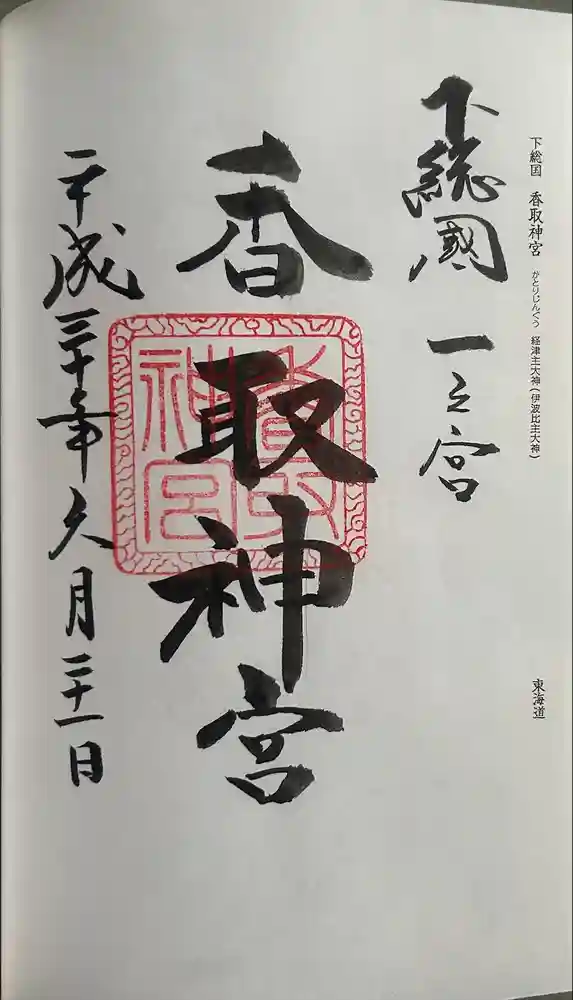 下総国 香取神宮 かとりじんぐう 経津主大神(伊波比主大神)
東海道
下総國 一之宮
香取神宮
香取神宮
平成三十年 月 十一日